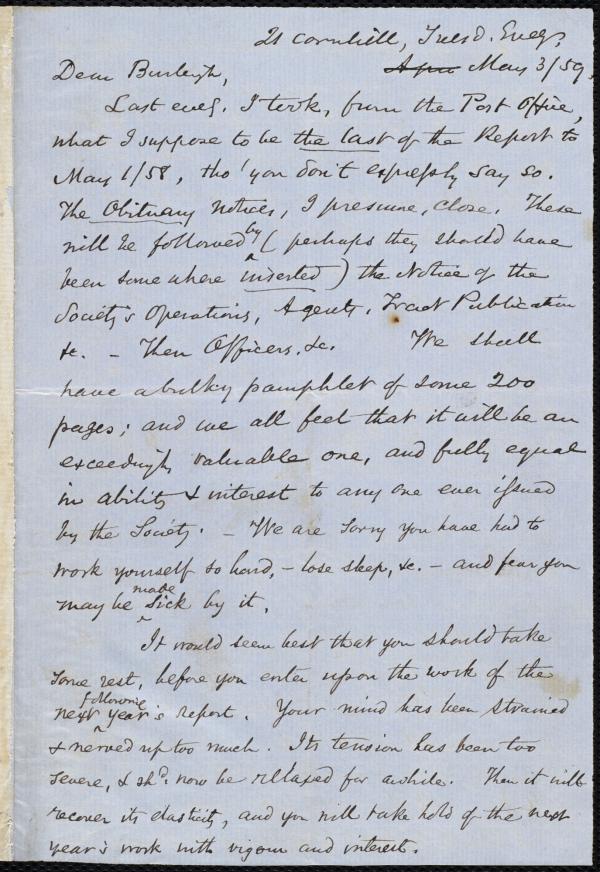 21 Cornhill, Tuesd. Eveg,
Apri May 3/59.
Dear Burleigh,
Last eveg. I took, from the Post Office,
what I suppose to be the last of the Report to
May 1/58, tho' you don't expressly say so.
The Obituary notices, I presume, close. These
will be followed by (perhaps they should have
been somewhere inserted) the Notice of the
Society's Operations, Agents, Tract Publication
&c. – Then Officers, &c. We shall
have a bulky pamphlet of some 200
pages; and we all feel that it will be an
exceedingly valuable one, and fully equal
in ability & interest to any one ever issued
by the Society. – We are sorry you have had to
work yourself so hard, – lose sleep, &c. – and fear you
may be made sick by it.
It would seem best that you should take
some rest, before you enter upon the work of the
next following year's report. Your mind has been strained
& nerved up too much. Its tension has been too
severe, & shd. now be relaxed for awhile. Then it will
recover its elasticity, and you will take hold of the next
year's work with vigour and interest.